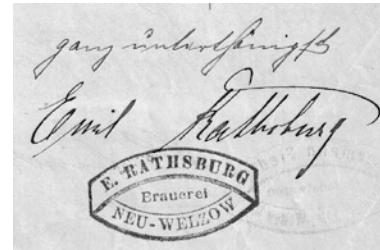 ganz unterthänigst
Emil Rathsburg
E. RATHSBURG
Brauerei
NEU-WELZOW